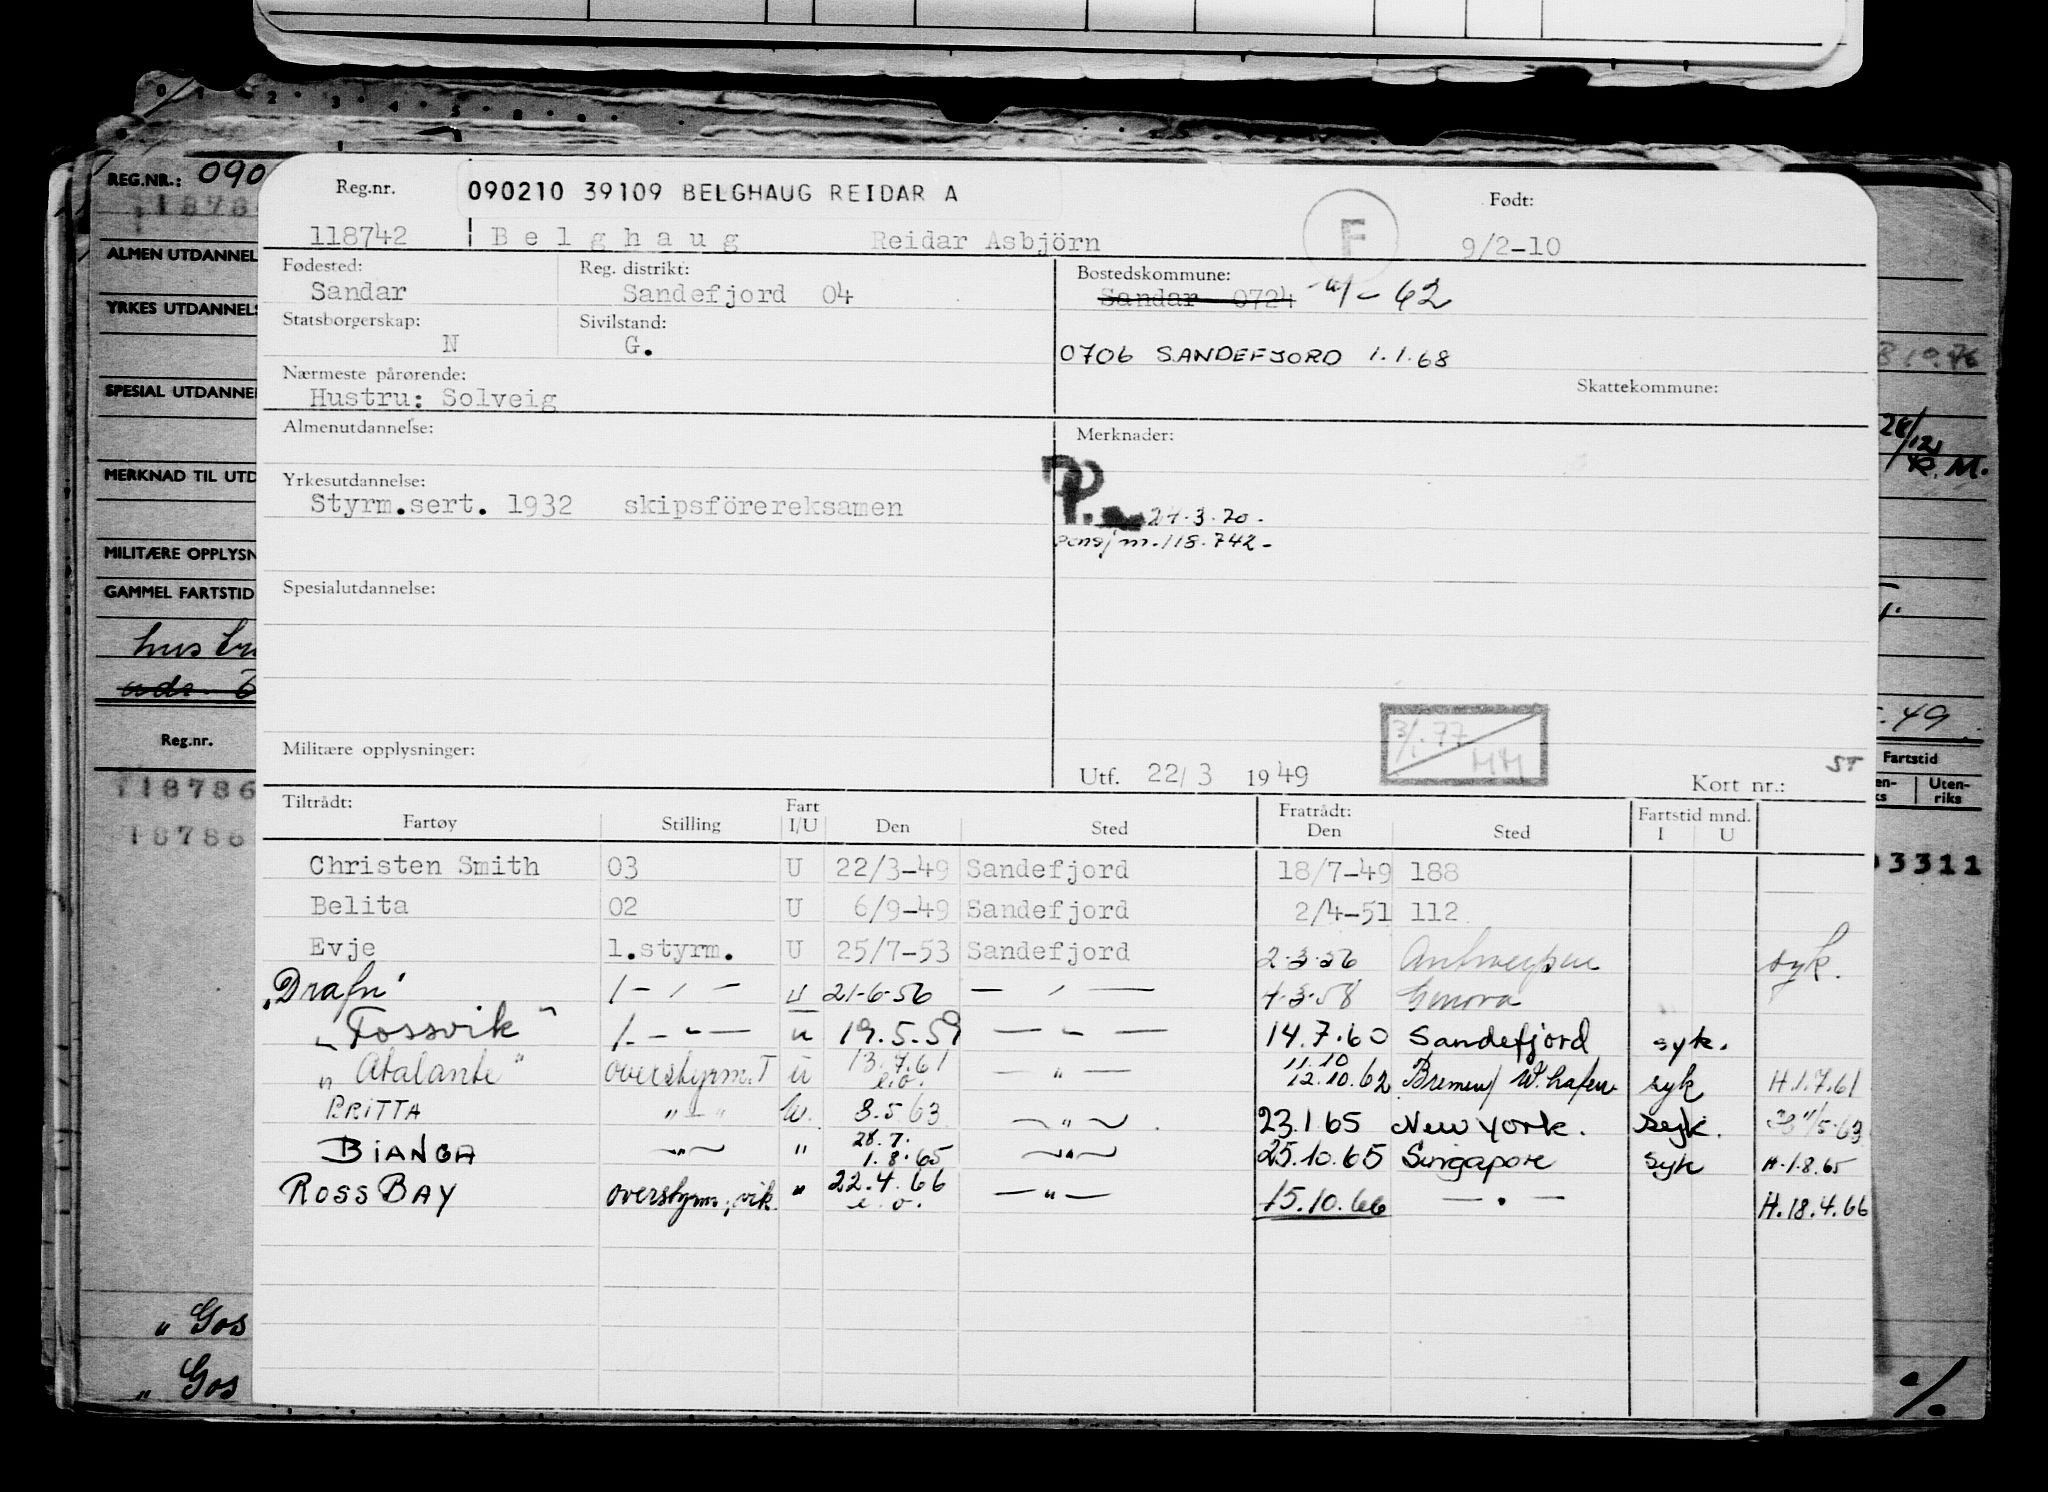 0 1 2 3 4 5 6
REG.NR.: 090
Reg.nr. 090210 39109 BELGHAUG REIDAR A F Født:
118742 Belghaug Reidar Asbjörn 9/2-10
ALMEN UTDANNEL
Fødested: Reg. distrikt: Bostedskommune:
Sandar Sandefjord 04 Sandar 0724 - 62
YRKES UTDANNELS
Statsborgerskap: Sivilstand:
N G. 0706 SANDEFJORD 1.1.68
Nærmeste pårørende: Skattekommune:
SPESIAL UTDANNE
Hustru: Solveig
Almenutdannelse: Merknader:
28/12
K.M.
MERKNAD TIL UTD
Yrkesutdannelse:
Styrm.sert. 1932 skipsförereksamen P. 24.3.70.
pensj nr. 118.742-
MILITÆRE OPPLYSN
GAMMEL FARTSTID
Spesialutdannelse:
hustru
Reg.nr.
Militære opplysninger: 3/1.77 HM
Utf. 22/3 1949 Kort nr.: ST
.49
Fartstid
en-ks Uten-riks
118786
18786
03311
Tiltrådt: Fart Fratrådt: Fartstid mnd.
Fartøy Stilling I/U Den Sted Den Sted I U
Christen Smith 03 U 22/3-49 Sandefjord 18/7-49 188
Belita 02 U 6/9-49 Sandefjord 2/4-51 112
Evje 1.styrm. U 25/7-53 Sandefjord 2.3.56 Antwerpen syk.
"Drafn" 1 - " - U 21-6-56 — " — 4.3.58 Genova
"Fossvik" 1. - " — u 19.5.59 — " — 14.7.60 Sandefjord syk.
"Atalante" overstyrm. T u 13.7.61 e.o. — " — 11.10 12.10.62 Bremen/W.hafen syk H.1.7.61
BRITTA " — " U. 8.5.63 — " — 23.1.65 New York. syk. 5.63
BIANCA — " — " 28.7. 1.8.65 — " — 25.10.65 Singapore syk H.1.8.65
ROSS BAY overstyrm., vik. " 22.4.66 e.o. — " — 15.10.66 — " — H.18.4.66
" Gos
" Gos
%.